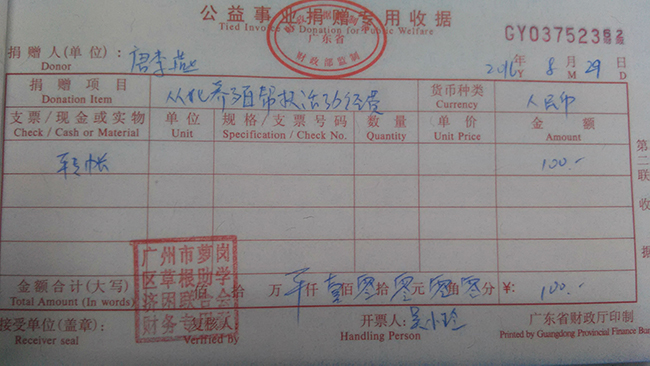 公益事业捐赠专用收据
Tied Invoice Donation for Public Welfare
广东省
财政部监制
GY03752382
捐赠人(单位): 唐李燕
Donor
2016年 8月 29日
Y M D
捐赠项目 从化养殖帮扶活动经费 货币种类 人民币
Donation Item Currency
支票/现金或实物 单位 规格/支票号码 数量 单价 金额
Check / Cash or Material Unit Specification / Check No. Quantity Unit Price Amount
转帐 100.-
第二联 收据
广州市萝岗
区草根助学
济困联合会
财务专用
金额合计(大写) 佰 拾 万 仟 壹佰 零拾 零元 零角 零分 ¥: 100.-
Total Amount (In words)
接受单位(盖章): 复核人 开票人: 吴小玲 广东省财政厅印制
Receiver seal Verified by Handling Person Printed by Guangdong Provincial Finance Bure